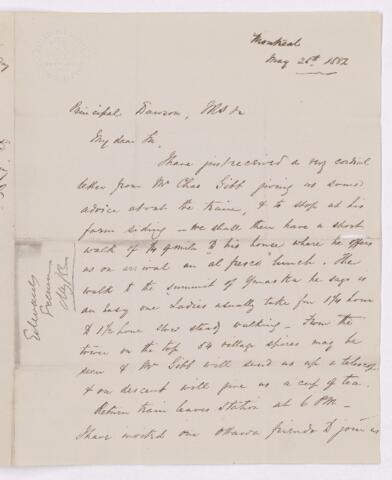 Montreal
May 26th 1882
Principal Dawson, FRS &c
My dear Sir,
I have just received a very cordial
letter from Mr Chas Gibb giving us some
advice about the train, & to stop at his
farm siding – we shall then have a short
walk of 1/4 mile to his house where he offers
us on arrival an "al fresco" lunch. The
walk to the summit of Yamaska he says is
an easy one Ladies usually take for 1 1/4 hour
to 1 1/2 hour slow steady walking – From the
tower on the top 54 village spires may be
seen & Mr Gibb will send us up a telescope
& on descent will give us a cup of tea.
Return train leaves Station at 6 PM –
I have invited our Ottawa friends to join us
Edwards